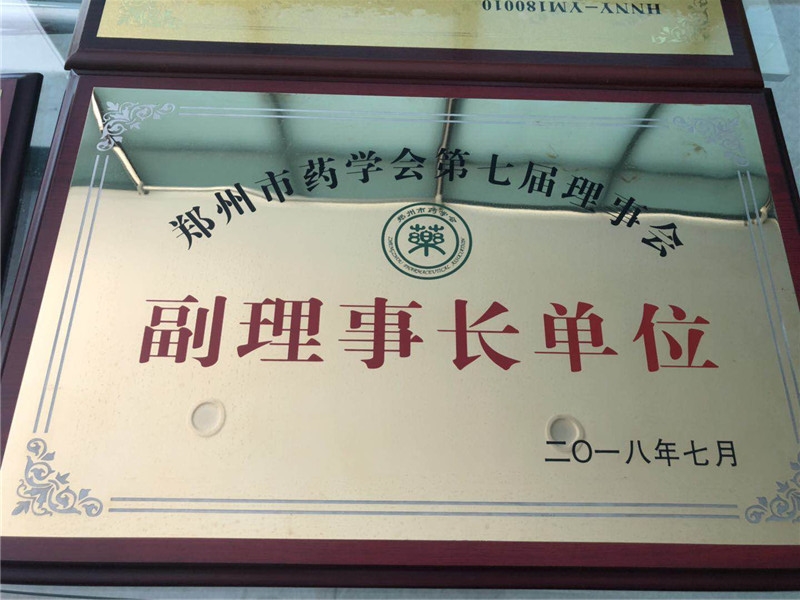 HNNY-YM180010
郑州市药学会第七届理事会
郑州市药学会
藥
ZHENGZHOU PHARMACEUTICAL ASSOCIATION
副理事长单位
二〇一八年七月